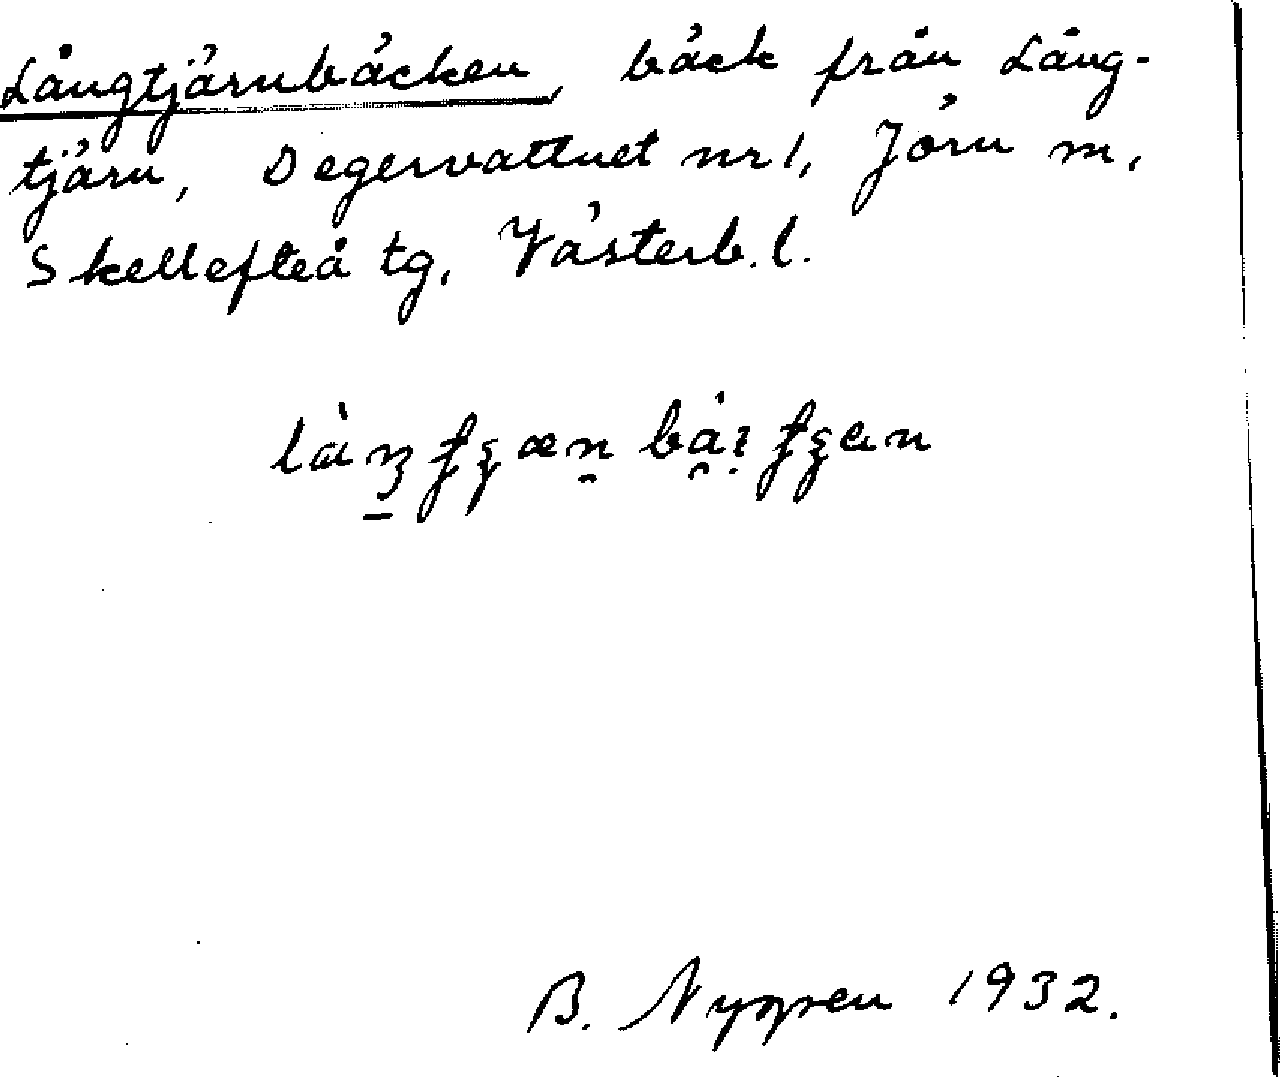 Långtjärnbäcken, bäck från Lång-
tjärn, Degervattnet nr 1, Jörn m,
Skellefteå tg. Västerb. l.
B. Nygren 1932.